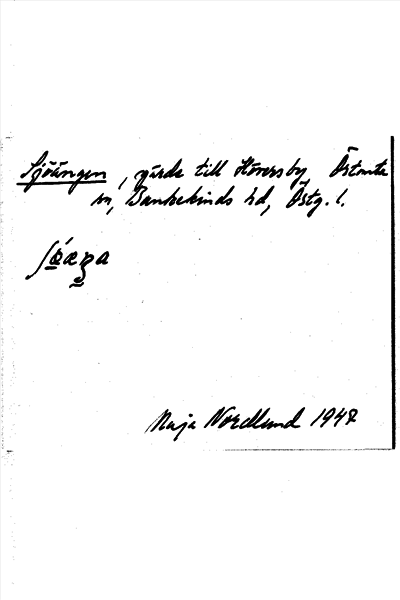 Sjöängen, gärde till Hörersby, Östomta
sn, Bankekinds hd, Östg. l.
Maja Nordlund 1947